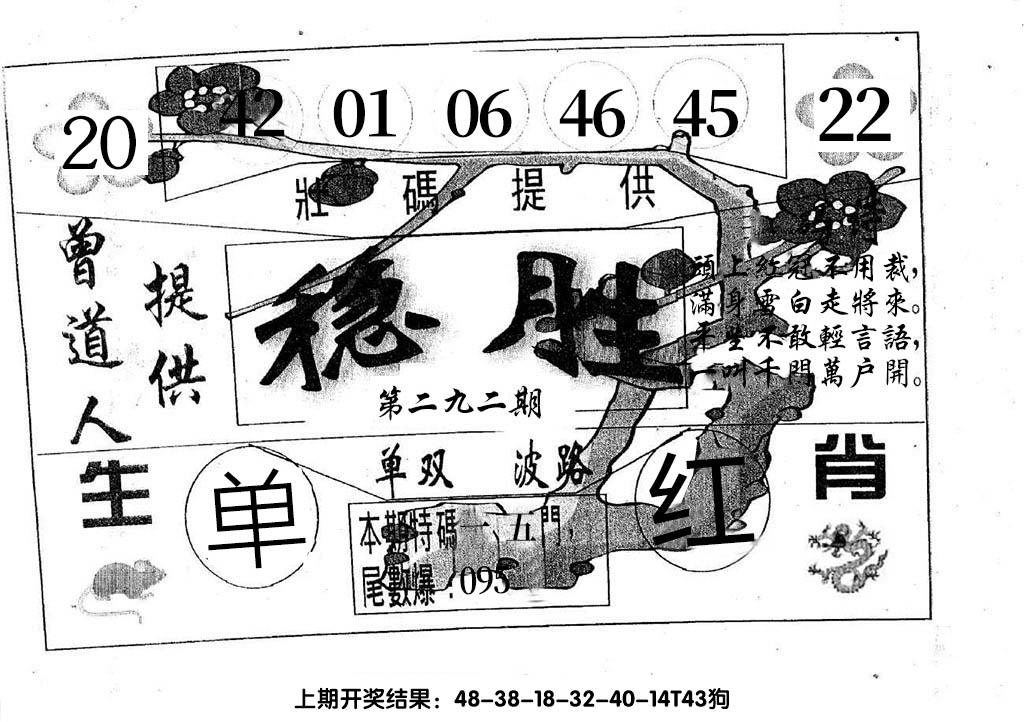 20 42 01 06 46 45 22
壯碼提供
曾道人
提供
稳胜
第二九二期
頭上紅冠不用裁，
滿身雪白走將來。
平生不敢輕言語，
一叫千門萬户開。
单双 波路
生 肖
单
红
本期特碼一、五門，
尾數爆:095
上期开奖结果：48-38-18-32-40-14T43狗